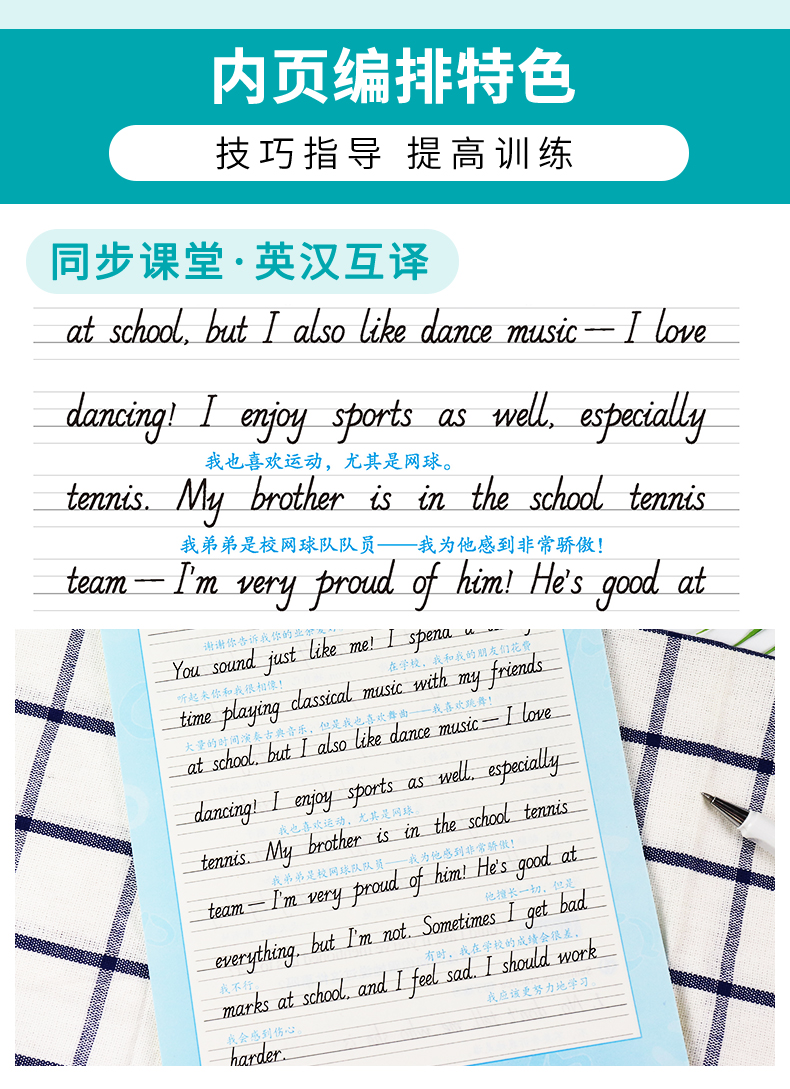 内页编排特色
技巧指导 提高训练
同步课堂·英汉互译
at school, but I also like dance music — I love
dancing! I enjoy sports as well, especially
我也喜欢运动，尤其是网球。
tennis. My brother is in the school tennis
我弟弟是校网球队队员——我为他感到非常骄傲！
team — I'm very proud of him! He's good at
谢谢你告诉我你的业余爱好
You sound just like me! I spend a
听起来你和我很相像！ 在学校，我和我的朋友们花费
time playing classical music with my friends
大量的时间演奏古典音乐，但是我也喜欢舞曲——我喜欢跳舞！
at school, but I also like dance music — I love
dancing! I enjoy sports as well, especially
我也喜欢运动，尤其是网球。
tennis. My brother is in the school tennis
我弟弟是校网球队队员——我为他感到非常骄傲！
team — I'm very proud of him! He's good at
他擅长一切，但是
everything, but I'm not. Sometimes I get bad
我不行。 有时，我在学校的成绩会很差，
marks at school, and I feel sad. I should work
我会感到伤心。 我应该更努力地学习。
harder.